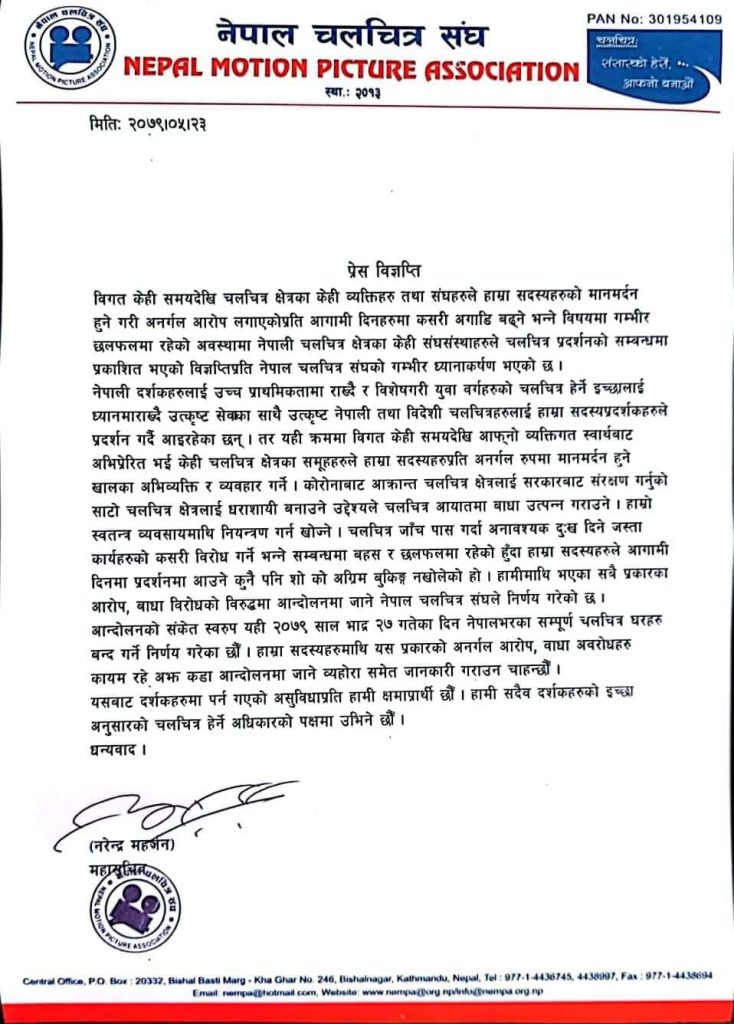 नेपाल चलचित्र संघ
NEPAL MOTION PICTURE ASSOCIATION
स्था.: २०१३
PAN No: 301954109
चलचित्र:
संसारको हेरौं, ...
आफ्नो बनाऔं
नेपाल चलचित्र संघ
NEPAL MOTION PICTURE ASSOCIATION
मिति: २०७९।०५।२३
प्रेस विज्ञप्ति
विगत केही समयदेखि चलचित्र क्षेत्रका केही व्यक्तिहरु तथा संघहरुले हाम्रा सदस्यहरुको मानमर्दन
हुने गरी अनर्गल आरोप लगाएकोप्रति आगामी दिनहरुमा कसरी अगाडि बढ्ने भन्ने विषयमा गम्भीर
छलफलमा रहेको अवस्थामा नेपाली चलचित्र क्षेत्रका केही संघसंस्थाहरुले चलचित्र प्रदर्शनको सम्बन्धमा
प्रकाशित भएको विज्ञप्तिप्रति नेपाल चलचित्र संघको गम्भीर ध्यानाकर्षण भएको छ ।
नेपाली दर्शकहरुलाई उच्च प्राथमिकतामा राख्दै र विशेषगरी युवा वर्गहरुको चलचित्र हेर्ने इच्छालाई
ध्यानमाराख्दै उत्कृष्ट सेवाका साथै उत्कृष्ट नेपाली तथा विदेशी चलचित्रहरुलाई हाम्रा सदस्यप्रदर्शकहरुले
प्रदर्शन गर्दै आइरहेका छन् । तर यही क्रममा विगत केही समयदेखि आफ्नो व्यक्तिगत स्वार्थबाट
अभिप्रेरित भई केही चलचित्र क्षेत्रका समूहहरुले हाम्रा सदस्यहरुप्रति अनर्गल रुपमा मानमर्दन हुने
खालका अभिव्यक्ति र व्यवहार गर्ने । कोरोनाबाट आक्रान्त चलचित्र क्षेत्रलाई सरकारबाट संरक्षण गर्नुको
साटो चलचित्र क्षेत्रलाई धराशायी बनाउने उद्देश्यले चलचित्र आयातमा बाधा उत्पन्न गराउने । हाम्रो
स्वतन्त्र व्यवसायमाथि नियन्त्रण गर्न खोज्ने । चलचित्र जाँच पास गर्दा अनावश्यक दुःख दिने जस्ता
कार्यहरुको कसरी विरोध गर्ने भन्ने सम्बन्धमा बहस र छलफलमा रहेको हुँदा हाम्रा सदस्यहरुले आगामी
दिनमा प्रदर्शनमा आउने कुनै पनि शो को अग्रिम बुकिङ्ग नखोलेको हो । हामीमाथि भएका सबै प्रकारका
आरोप, बाधा विरोधको विरुद्धमा आन्दोलनमा जाने नेपाल चलचित्र संघले निर्णय गरेको छ ।
आन्दोलनको संकेत स्वरुप यही २०७९ साल भाद्र २७ गतेका दिन नेपालभरका सम्पूर्ण चलचित्र घरहरु
बन्द गर्ने निर्णय गरेका छौँ । हाम्रा सदस्यहरुमाथि यस प्रकारको अनर्गल आरोप, वाधा अवरोधहरु
कायम रहे अझ कडा आन्दोलनमा जाने व्यहोरा समेत जानकारी गराउन चाहन्छौँ ।
यसबाट दर्शकहरुमा पर्न गएको असुविधाप्रति हामी क्षमाप्रार्थी छौँ । हामी सदैव दर्शकहरुको इच्छा
अनुसारको चलचित्र हेर्ने अधिकारको पक्षमा उभिने छौँ ।
धन्यवाद ।
(नरेन्द्र महर्जन)
महासचिव
नेपाल चलचित्र संघ
NEPAL MOTION PICTURE ASSOCIATION
Central Office, P.O. Box : 20332, Bishal Basti Marg - Kha Ghar No. 246, Bishalnagar, Kathmandu, Nepal, Tel : 977-1-4436745, 4438997, Fax : 977-1-4438694
Email: nempa@hotmail.com, Website: www.nempa@org.np/info@nempa.org.np